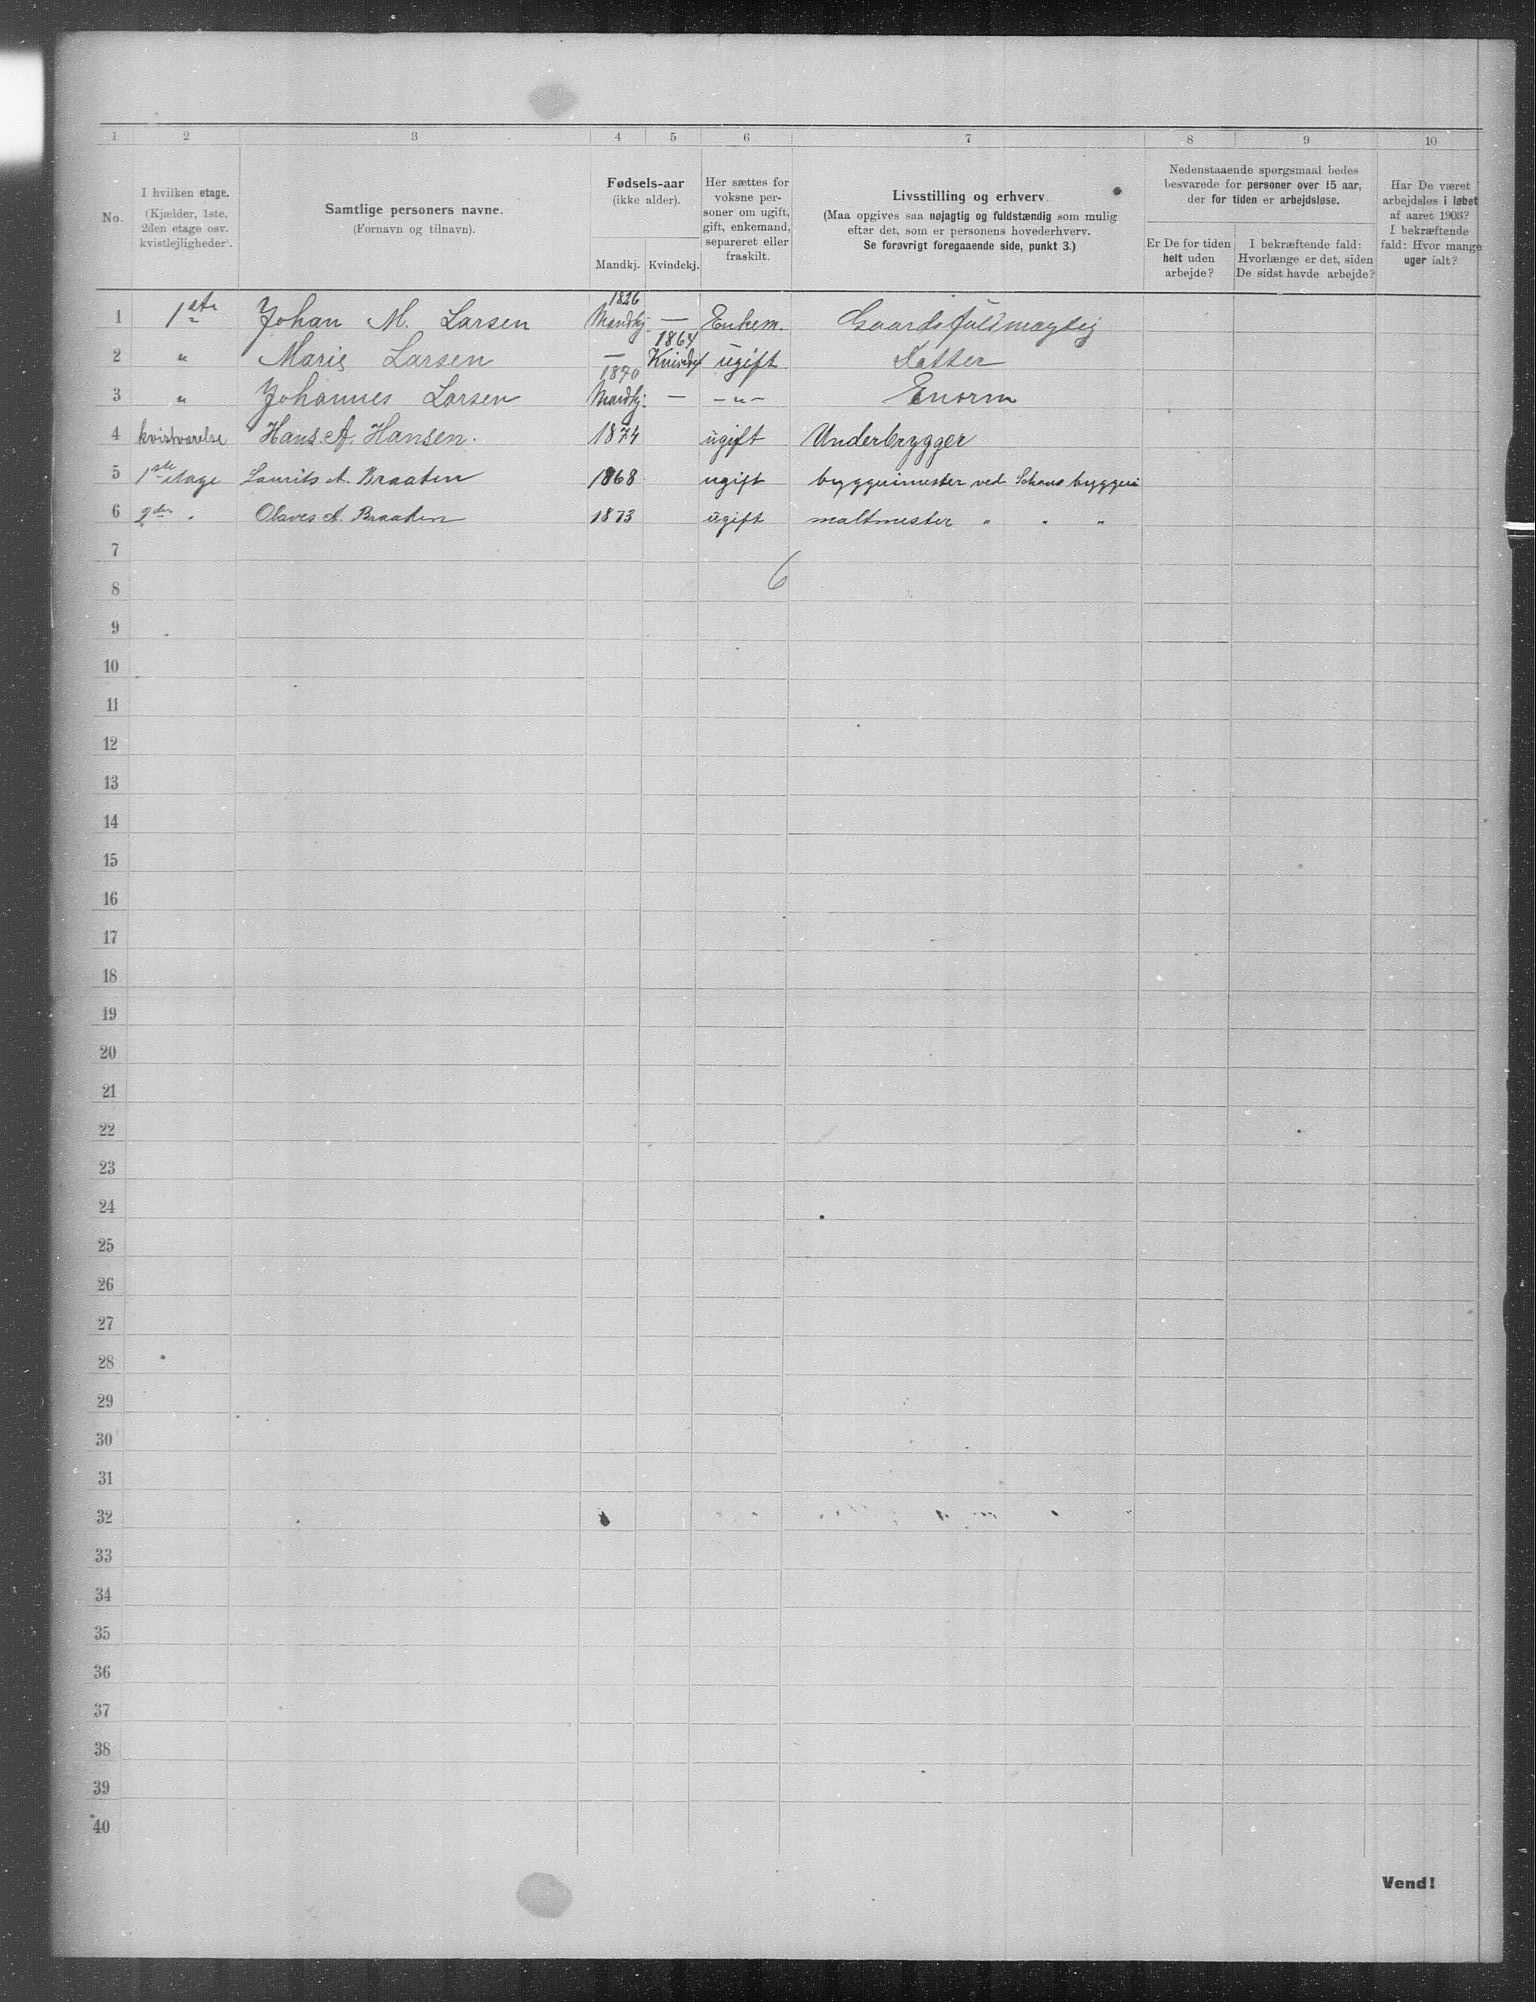 1 2 3 4 5 6 7 8 9 10
No.
I hvilken etage.
(Kjælder, 1ste,
2den etage osv.
kvistlejligheder).
Samtlige personers navne.
(Fornavn og tilnavn).
Fødsels-aar
(ikke alder).
Mandkj. Kvindekj.
Her sættes for
voksne per-
soner om ugift,
gift, enkemand,
separeret eller
fraskilt.
Livsstilling og erhverv.
(Maa opgives saa nøjagtig og fuldstændig som mulig
efter det, som er personens hovederhverv.
Se forøvrigt foregaaende side, punkt 3.)
Nedenstaaende spørgsmaal bedes
besvarede for personer over 15 aar,
der for tiden er arbejdsløse.
Er De for tiden
helt uden
arbejde?
I bekræftende fald:
Hvorlænge er det, siden
De sidst havde arbejde?
Har De været
arbejdsløs i løbet
af aaret 1903?
I bekræftende
fald: Hvor mange
uger ialt?
1 1ste Johan M. Larsen 1826 Mandkj. — Enkem. Gaardsfuldmægtig
2 " Marie Larsen — 1864 Kvindekj ugift Datter
3 " Johannes Larsen 1840 Mandkj. — -"- Enorm
4 kvistværelse Hans A. Hansen. 1874 ugift Underbrygger
5 1ste etage Laurits A. Braaten 1868 ugift bryggerimester ved Schous bryggeri
6 2den " Olaves A. Braaten 1873 ugift maltmester " " "
7
6
8
9
10
11
12
13
14
15
16
17
18
19
20
21
22
23
24
25
26
27
28
29
30
31
32
33
34
35
36
37
38
39
40
Vend!